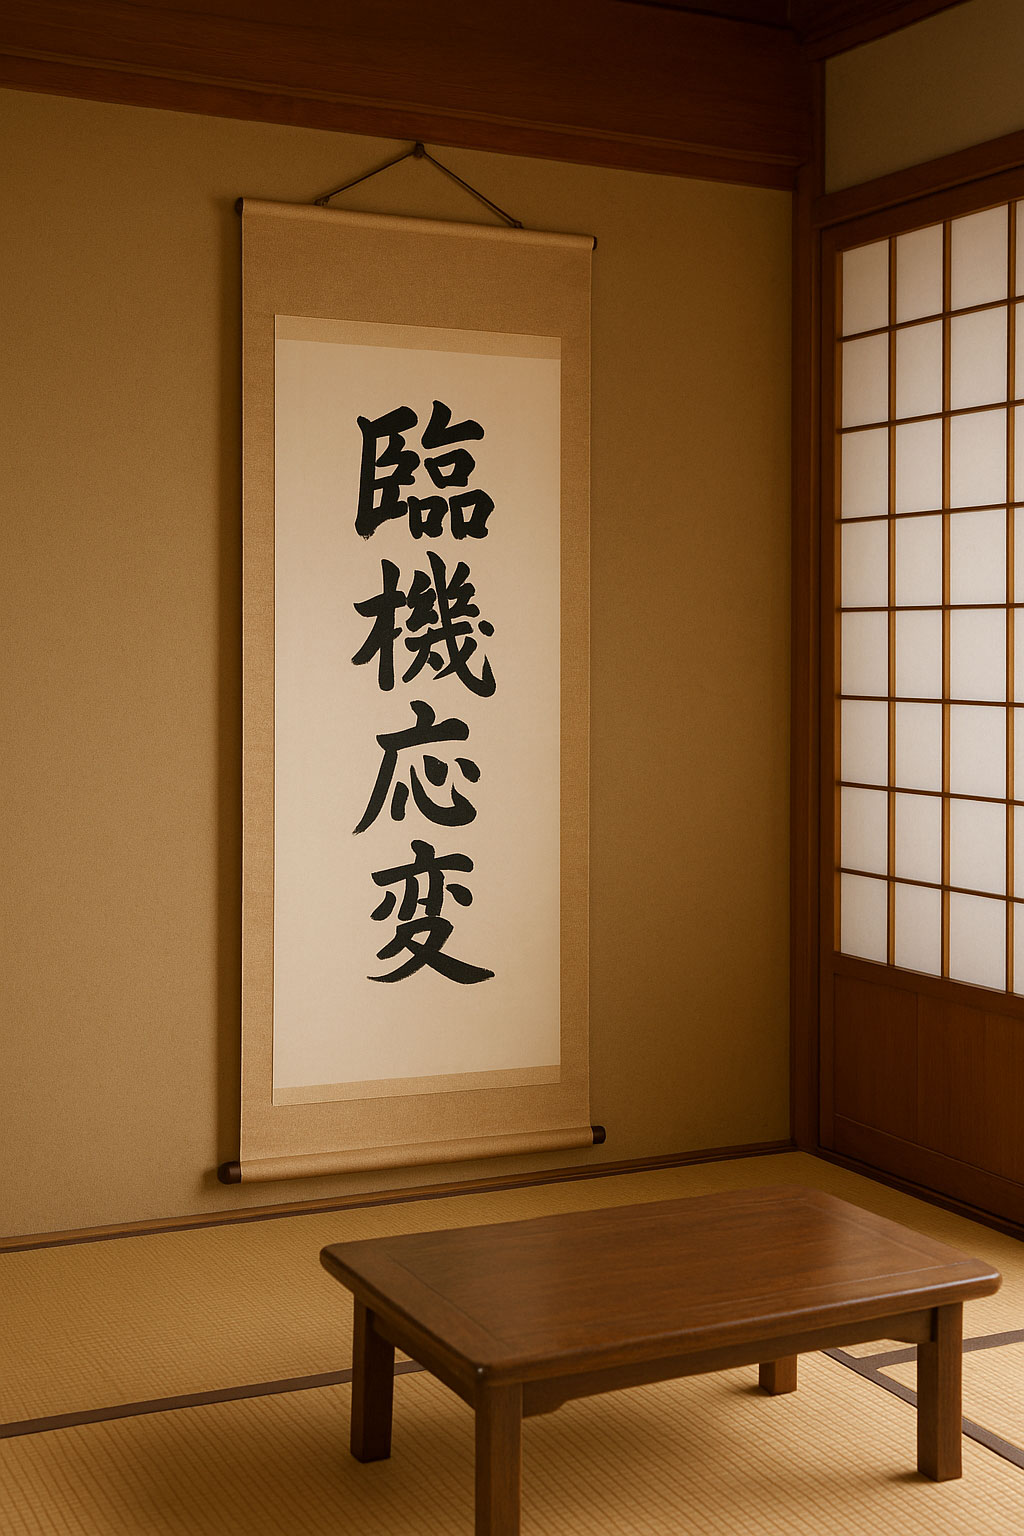 臨機応変